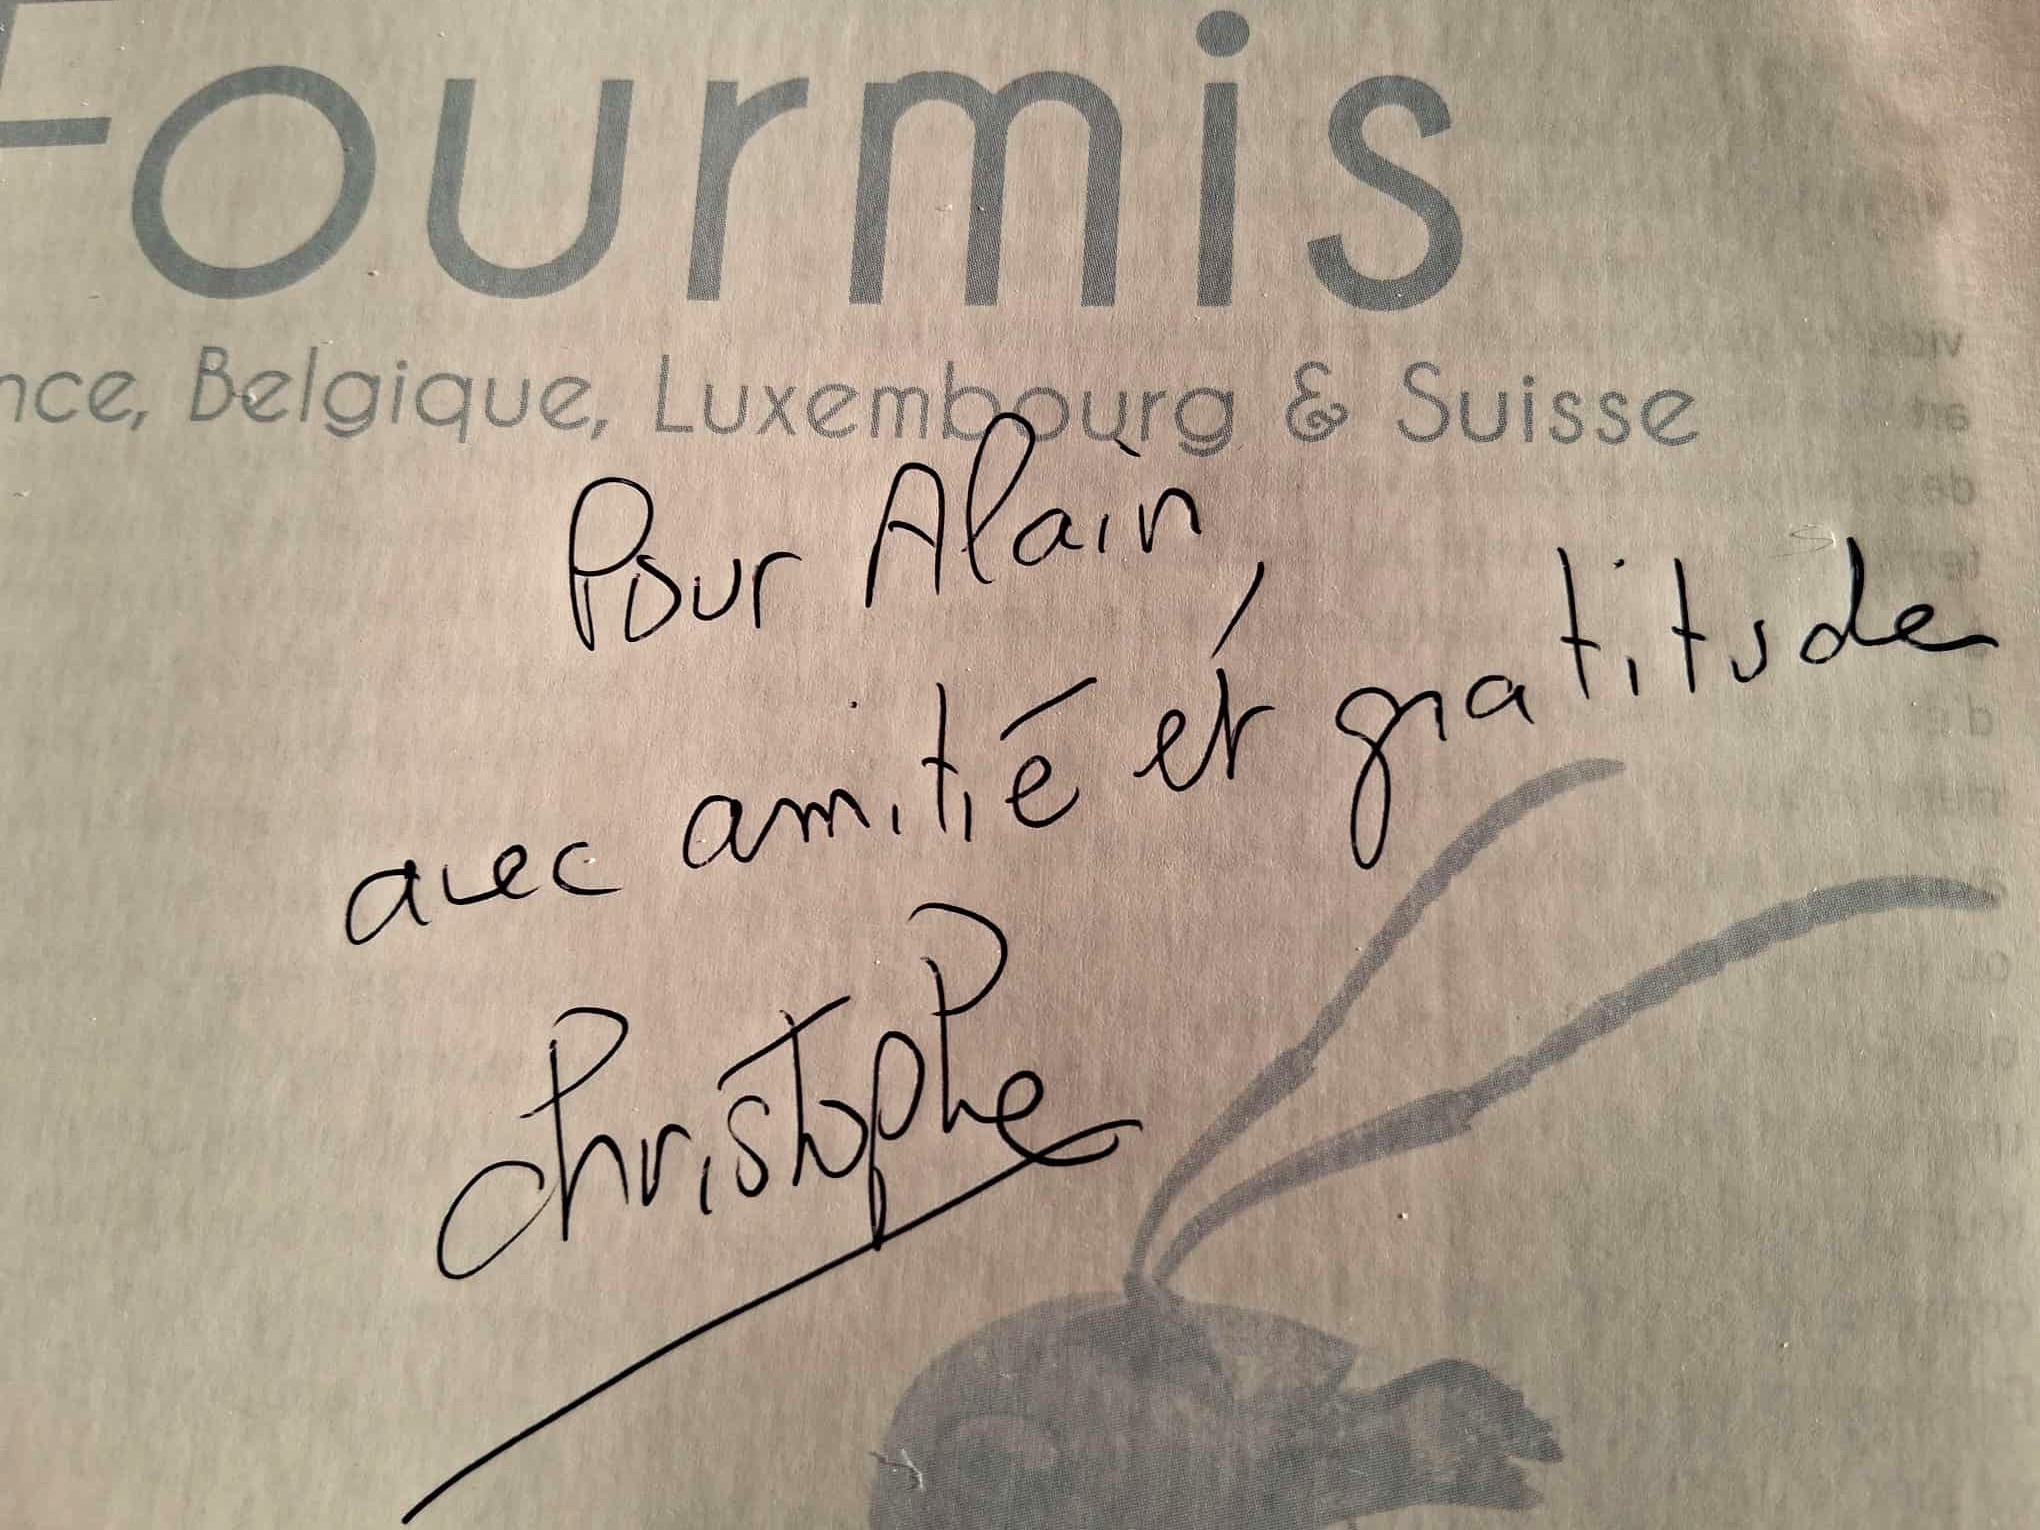 Fourmis
nce, Belgique, Luxembourg & Suisse
Pour Alain,
avec amitié et gratitude
Christophe